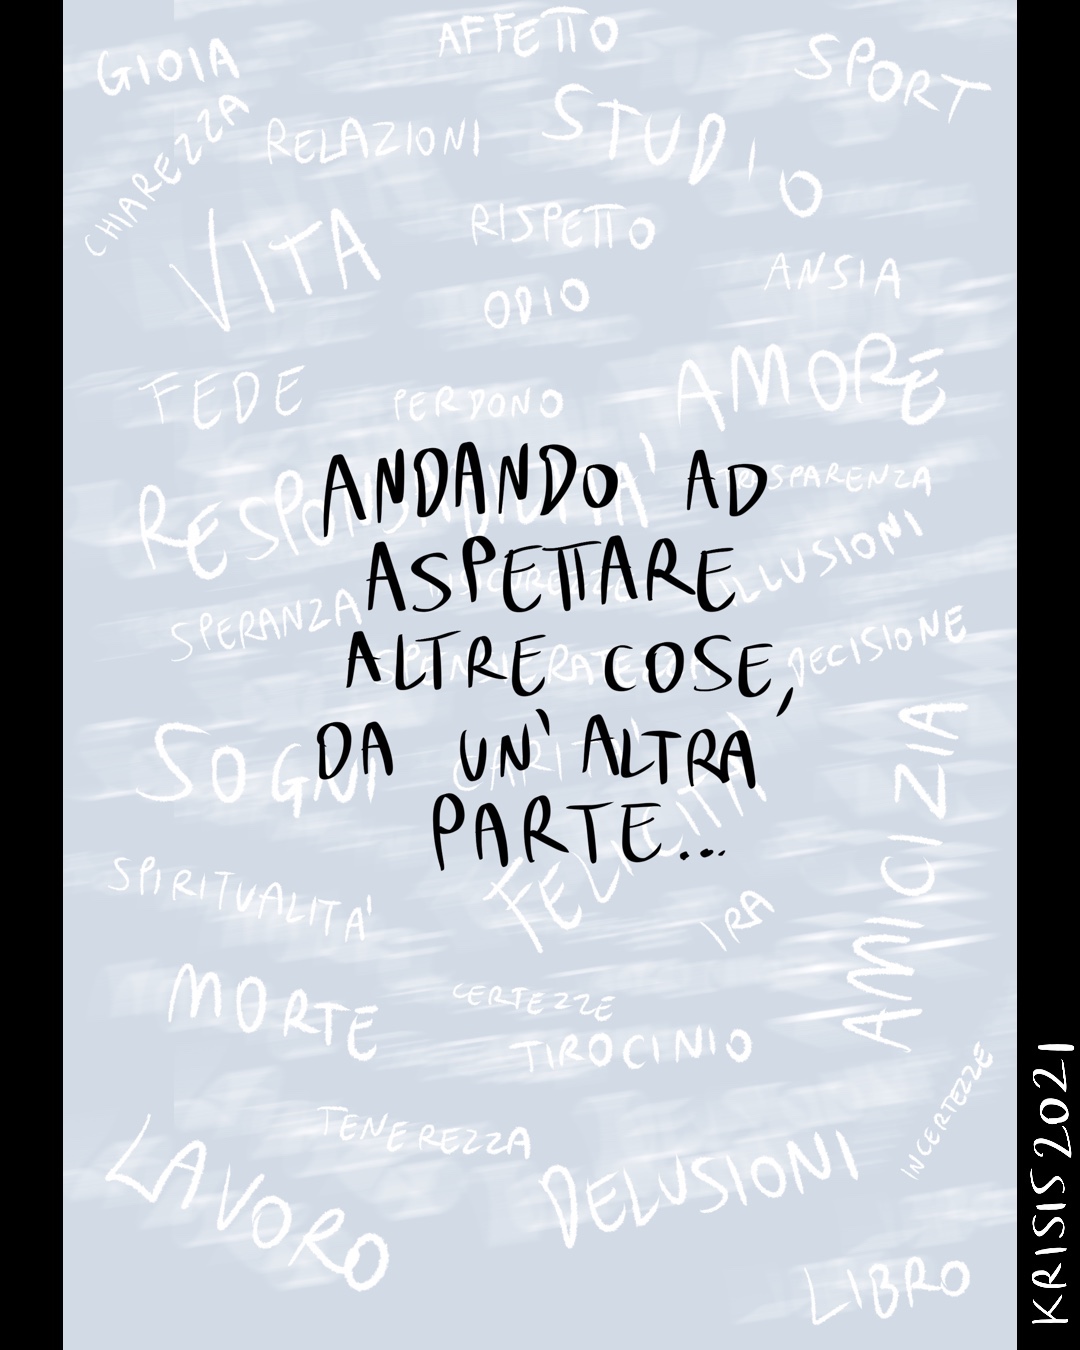 GIOIA
AFFETTO
SPORT
CHIAREZZA
RELAZIONI
STUDIO
VITA
RISPETTO
ODIO
ANSIA
FEDE
PERDONO
AMORE
RESPONSABILITA'
TRASPARENZA
ANDANDO AD
ASPETTARE
ALTRE COSE,
DA UN'ALTRA
PARTE...
SPERANZA
ILLUSIONI
SPENSIERATEZZA
DECISIONE
SOGNI
CARITA'
FELICITA'
AMICIZIA
SPIRITUALITA'
IRA
MORTE
CERTEZZE
TIROCINIO
INCERTEZZE
TENEREZZA
LAVORO
DELUSIONI
LIBRO
KRISIS 2021